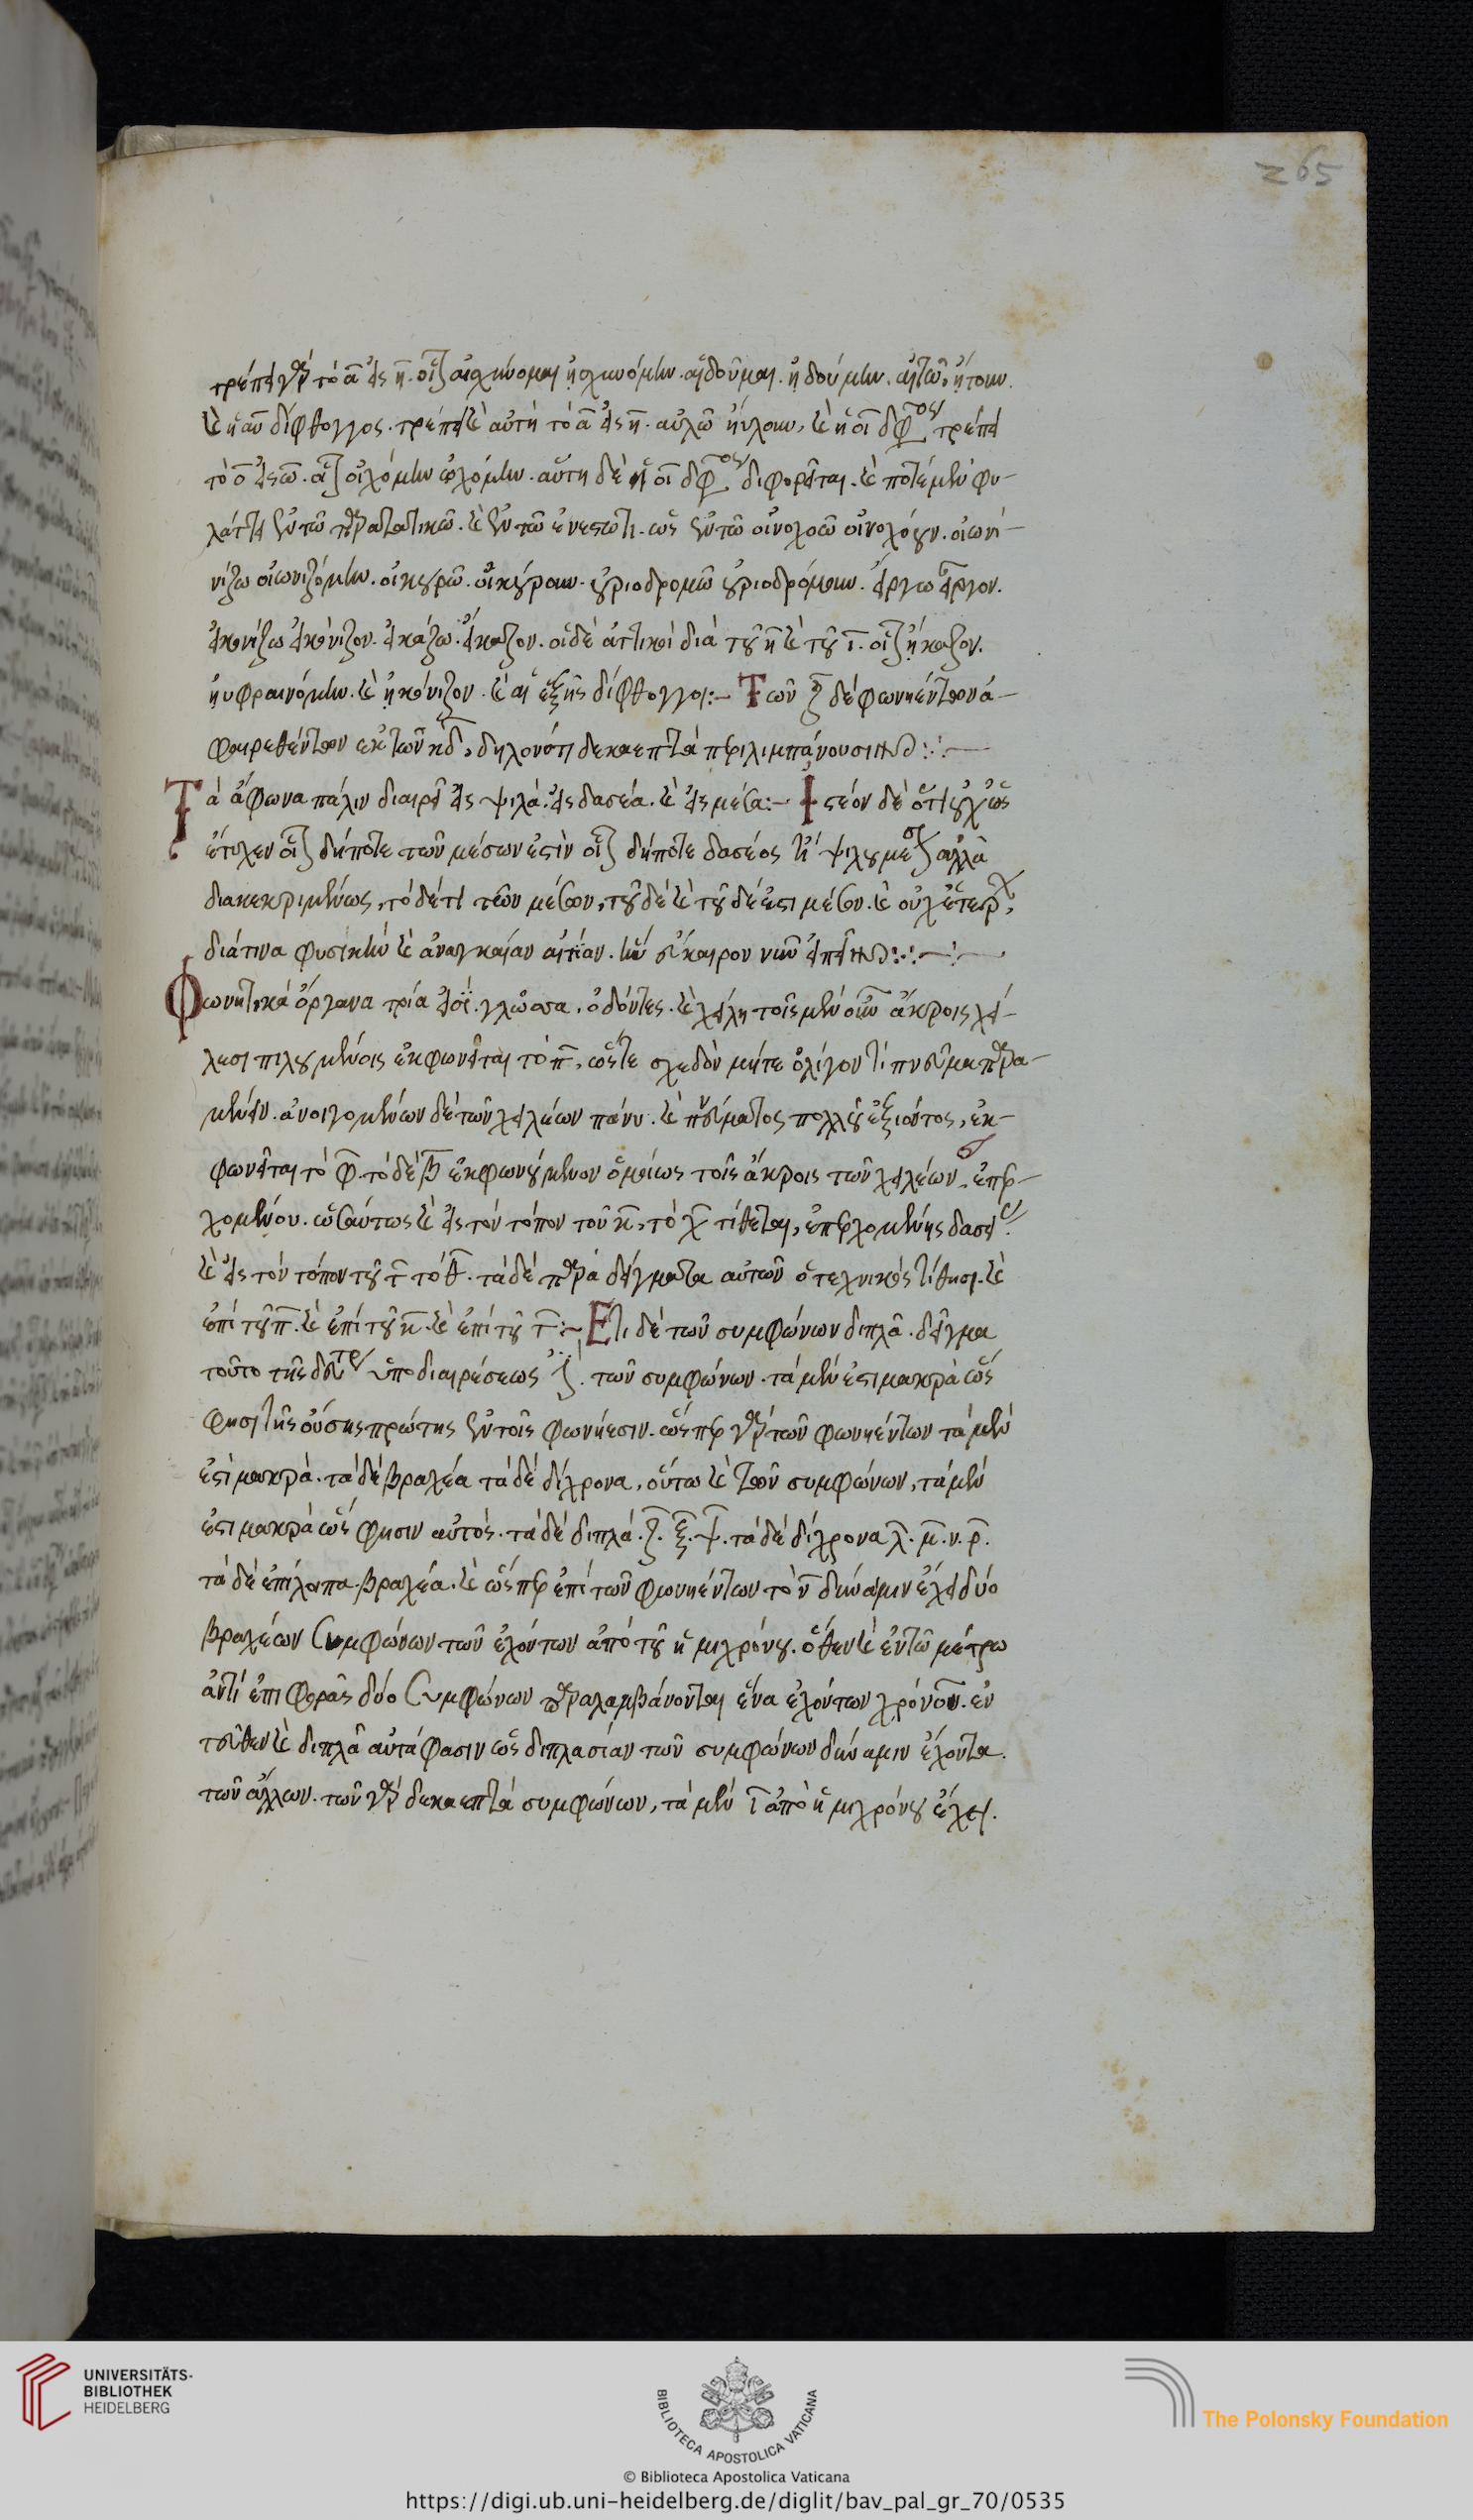 265
τρέπει γὰρ τὸ α εἰς η. οἷον αἰσχύνομαι ἠσχυνόμην. αἰδοῦμαι. ᾐδούμην. αἰτῶ, ᾔτουν.
καὶ ἡ αυ δίφθογγος. τρέπει καὶ αὐτὴ τὸ α εἰς η. αὐλῶ ηὔλουν, καὶ ἡ οι δίφθογγος τρέπει
τὸ ο εἰς ω. οἷον οἰχόμην ᾠχόμην. αὕτη δὲ ἡ οι δίφθογγος διφορεῖται. καὶ ποτὲ μὲν φυ-
λάττει ἐν τῶ παρατατικῶ. καὶ ἐν τῶ ἐνεστῶτι. ὡς ἐν τῶ οἰνοχοῶ οἰνοχόουν. οἰωνί-
νίζω οἰωνιζόμην. οἰκουρῶ. οἰκούρουν. οὐριοδρομῶ οὐριοδρόμουν. εἴργω εἶργον.
εἰκονίζω εἰκόνιζον. εἰκάζω. εἴκαζον. οἱ δὲ ἀττικοὶ διὰ τοῦ η καὶ τοῦ ι. οἷον ᾔκαζον.
ηὐφραινόμην. καὶ ᾐκόνιζον. καὶ αἱ ἑξῆς δίφθογγοι:– Τῶν ζ δὲ φωνηέντων ἀ-
φαιρεθέντων ἐκ τῶν κδ, δηλονότι δεκαεπτὰ περιλιμπάνουσιν:–
Τὰ ἄφωνα πάλιν διαιρεῖ εἰς ψιλά. εἰς δασέα. καὶ εἰς μέσα:– Ἰστέον δὲ ὅτι οὐχ ὡς
ἔτυχεν δήποτε τῶν μέσων ἐστὶν δήποτε δασέος ψιλοῦ ἀλλὰ
διακεκριμένως, τὸ δέ τι τῶν μέσων, τοῦ δὲ καὶ τοῦ δέ ἐστι μέσον. καὶ οὐχ
διά τινα φυσικὴν καὶ ἀναγκαίαν αἰτίαν. ἣν οὐ καιρὸν νῦν εἰπεῖν:–
Φωνητικὰ ὄργανα τρία εἰσί. γλῶσσα. ὀδόντες. καὶ χείλη τοῖς μὲν οὖν ἄκροις χεί-
λεσι πιλουμένοις ἐκφωνεῖται τὸ π, ὥστε σχεδὸν μήτε ὀλίγον τι πνεῦμα παρα-
μένειν. ἀνοιγομένων δὲ τῶν χειλέων πάνυ. καὶ πνεύματος πολλοῦ ἐξιόντος, ἐκ-
φωνεῖται τὸ φ. τὸ δὲ β ἐκφωνούμενον ὁμοίως τοῖς ἄκροις τῶν χειλέων. ἐπερ-
χομένου. ὡσαύτως καὶ εἰς τὸν τόπον τοῦ κ, τὸ χ τίθεται, ἐπερχομένης
καὶ εἰς τὸν τόπον τοῦ τ τὸ θ. τὰ δὲ παραδείγματα αὐτῶν ὁ τεχνικὸς τίθησι. καὶ
ἐπὶ τοῦ π. καὶ ἐπὶ τοῦ κ. καὶ ἐπὶ τοῦ τ:– Ἔτι δὲ τῶν συμφώνων διπλᾶ. δεῖγμα
τοῦτο τῆς δευτέρας ὑποδιαιρέσεως. τῶν συμφώνων. τὰ μέν ἐστι μακρὰ ὥς
φησι τῆς οὔσης πρώτης ἐν τοῖς φωνήεσιν. ὥσπερ γὰρ τῶν φωνηέντων τὰ μέν
ἐστὶ μακρὰ. τὰ δὲ βραχέα τὰ δὲ δίχρονα, οὕτω καὶ τῶν συμφώνων, τὰ μέν
ἐστι μακρὰ ὥς φησιν αὐτός. τὰ δὲ διπλά. ζ. ξ. ψ. τὰ δὲ δίχρονα λ. μ. ν. ρ.
τὰ δὲ ἐπίλοιπα. βραχέα. καὶ ὥσπερ ἐπὶ τῶν φωνηέντων τὸ ν δύναμιν ἔχει δύο
βραχέων συμφώνων τῶν ἐχόντων ἀπὸ τοῦ ἡμιχρόνου. ὅθεν καὶ ἐν τῶ μέτρω
ἀντὶ ἐπιφορᾶς δύο συμφώνων παραλαμβάνονται ἕνα ἐχόντων χρόνον. ἐν
τεῦθεν καὶ διπλᾶ αὐτά φασιν ὡς διπλασίαν τῶν συμφώνων δύναμιν ἔχοντα.
τῶν ἄλλων. τῶν γὰρ δεκαεπτὰ συμφώνων, τὰ μὲν ι ἀπὸ ἡμιχρόνου ἔχει.
UNIVERSITÄTS-
BIBLIOTHEK
HEIDELBERG
BIBLIOTECA APOSTOLICA VATICANA
The Polonsky Foundation
© Biblioteca Apostolica Vaticana
https://digi.ub.uni-heidelberg.de/diglit/bav_pal_gr_70/0535